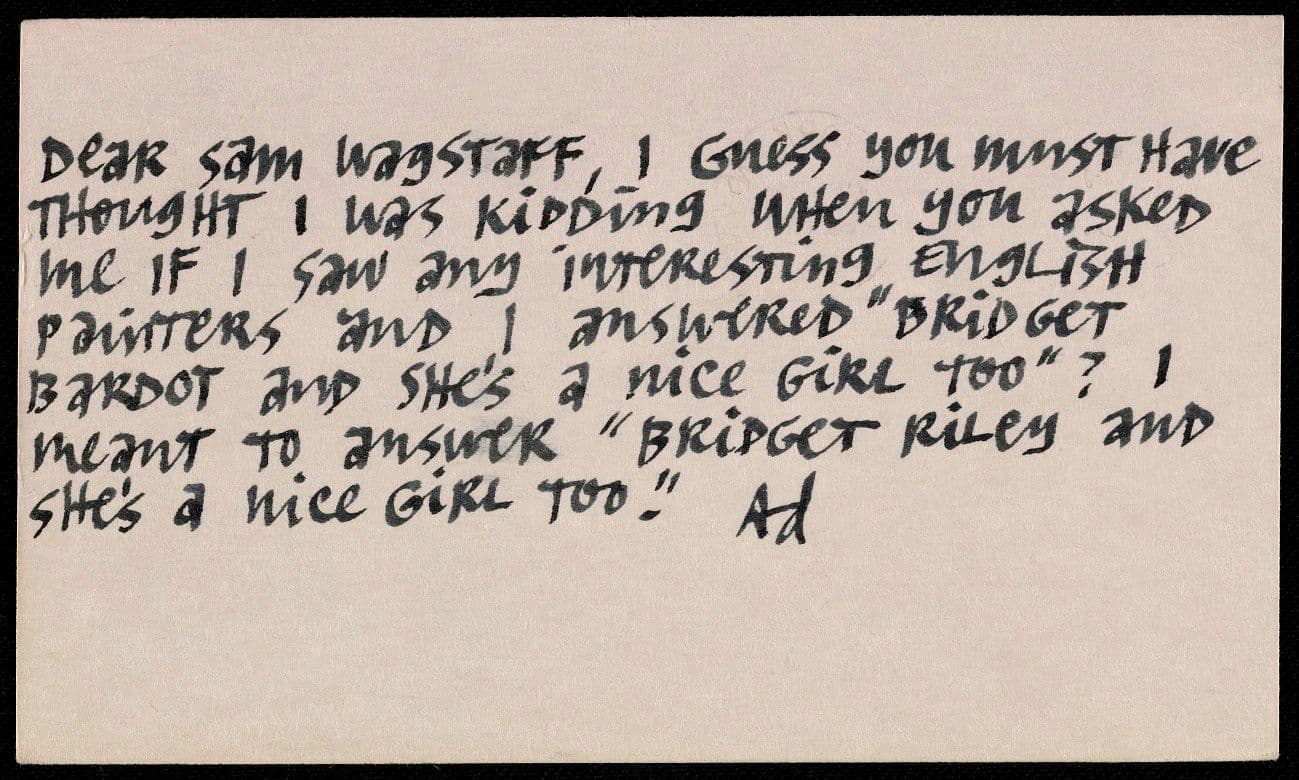 Dear Sam Wagstaff, I guess you must have
thought I was kidding when you asked
me if I saw any interesting English
painters and I answered "Bridget
Bardot and she's a nice girl too"? I
meant to answer "Bridget Riley and
she's a nice girl too." Ad